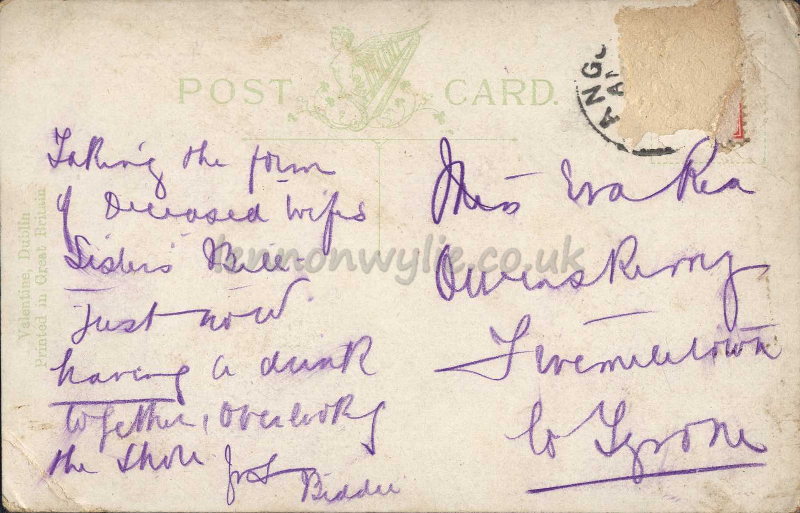 POST CARD.
ANG
Taking the form
of Deceased Wifes
Sisters Bill -
Just now
having a drink
together, overlooking
the Shore
Biddie
Miss Eva Rea
Owenskerry
Fivemiletown
Co Tyrone
Valentine, Dublin
Printed in Great Britain
lennonwylie.co.uk